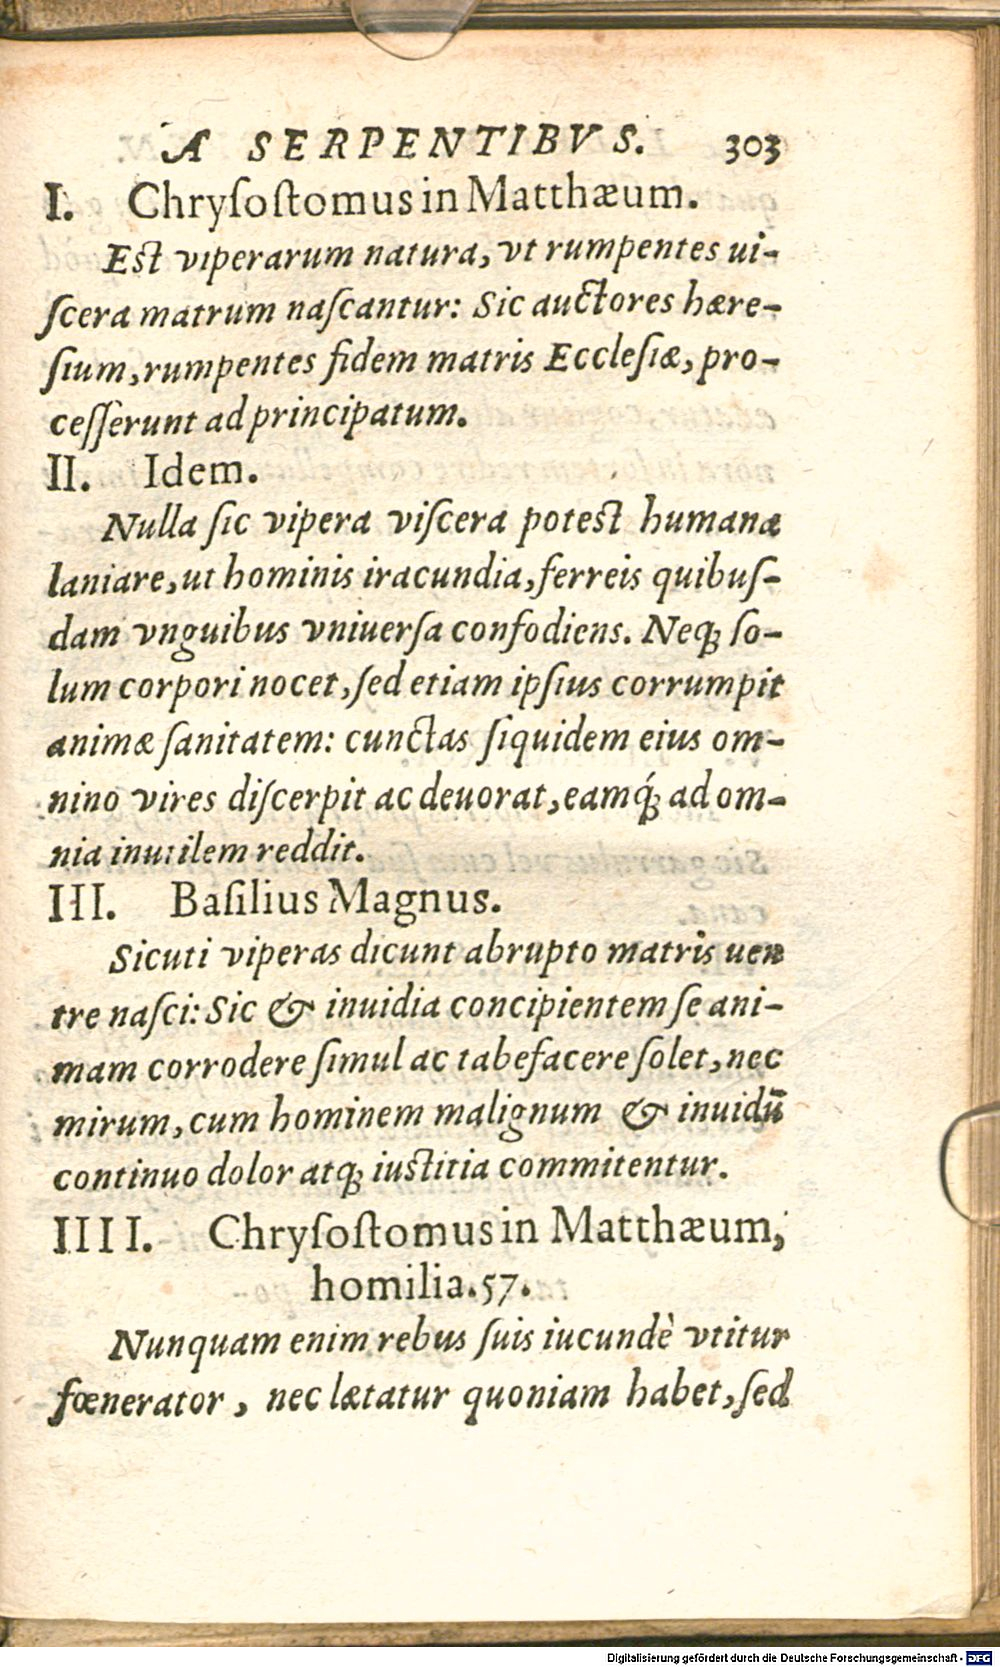 A SERPENTIBVS. 303
I. Chryſoſtomus in Matthæum.
Eſt viperarum natura, vt rumpentes ui-
ſcera matrum naſcantur: Sic auctores hære-
ſium, rumpentes fidem matris Eccleſiæ, pro-
ceſſerunt ad principatum.
II. Idem.
Nulla ſic vipera viſcera poteſt humanæ
laniare, ut hominis iracundia, ferreis quibuſ-
dam vnguibus vniuerſa confodiens. Neqꝫ ſo-
lum corpori nocet, ſed etiam ipſius corrumpit
animæ ſanitatem: cunctas ſiquidem eius om-
nino vires diſcerpit ac deuorat, eamqꝫ́ ad om-
nia inutilem reddit.
III. Baſilius Magnus.
Sicuti viperas dicunt abrupto matris uen
tre naſci: Sic & inuidia concipientem ſe ani-
mam corrodere ſimul ac tabefacere ſolet, nec
mirum, cum hominem malignum & inuidū
continuo dolor atqꝫ iuſtitia commitentur.
IIII. Chryſoſtomus in Matthæum,
homilia. 57.
Nunquam enim rebus ſuis iucundè vtitur
fœnerator, nec lætatur quoniam habet, ſed
Digitalisierung gefördert durch die Deutsche Forschungsgemeinschaft - DFG